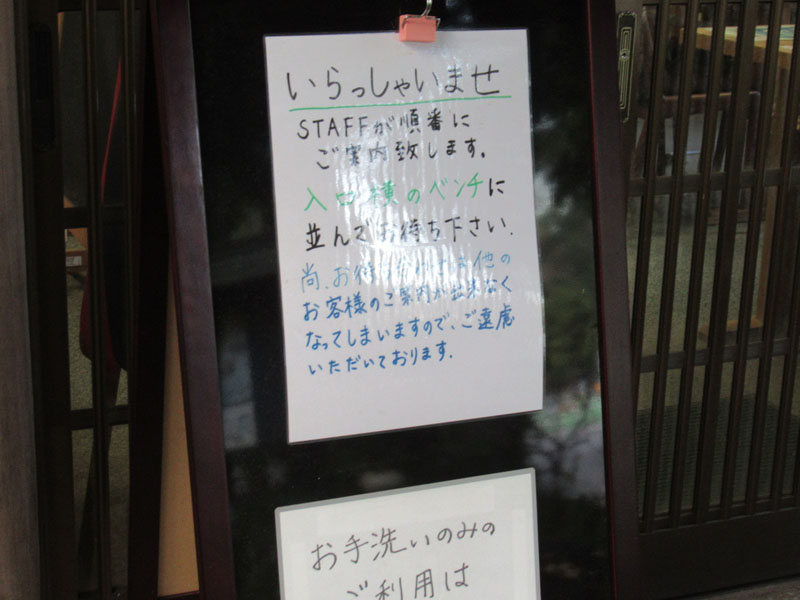 いらっしゃいませ
STAFFが順番に
ご案内致します。
入口横のベンチに
並んでお待ち下さい.
尚、お待 他の
お客様のご案内が出来なく
なってしまいますので、ご遠慮
いただいております.
お手洗いのみの
ご利用は